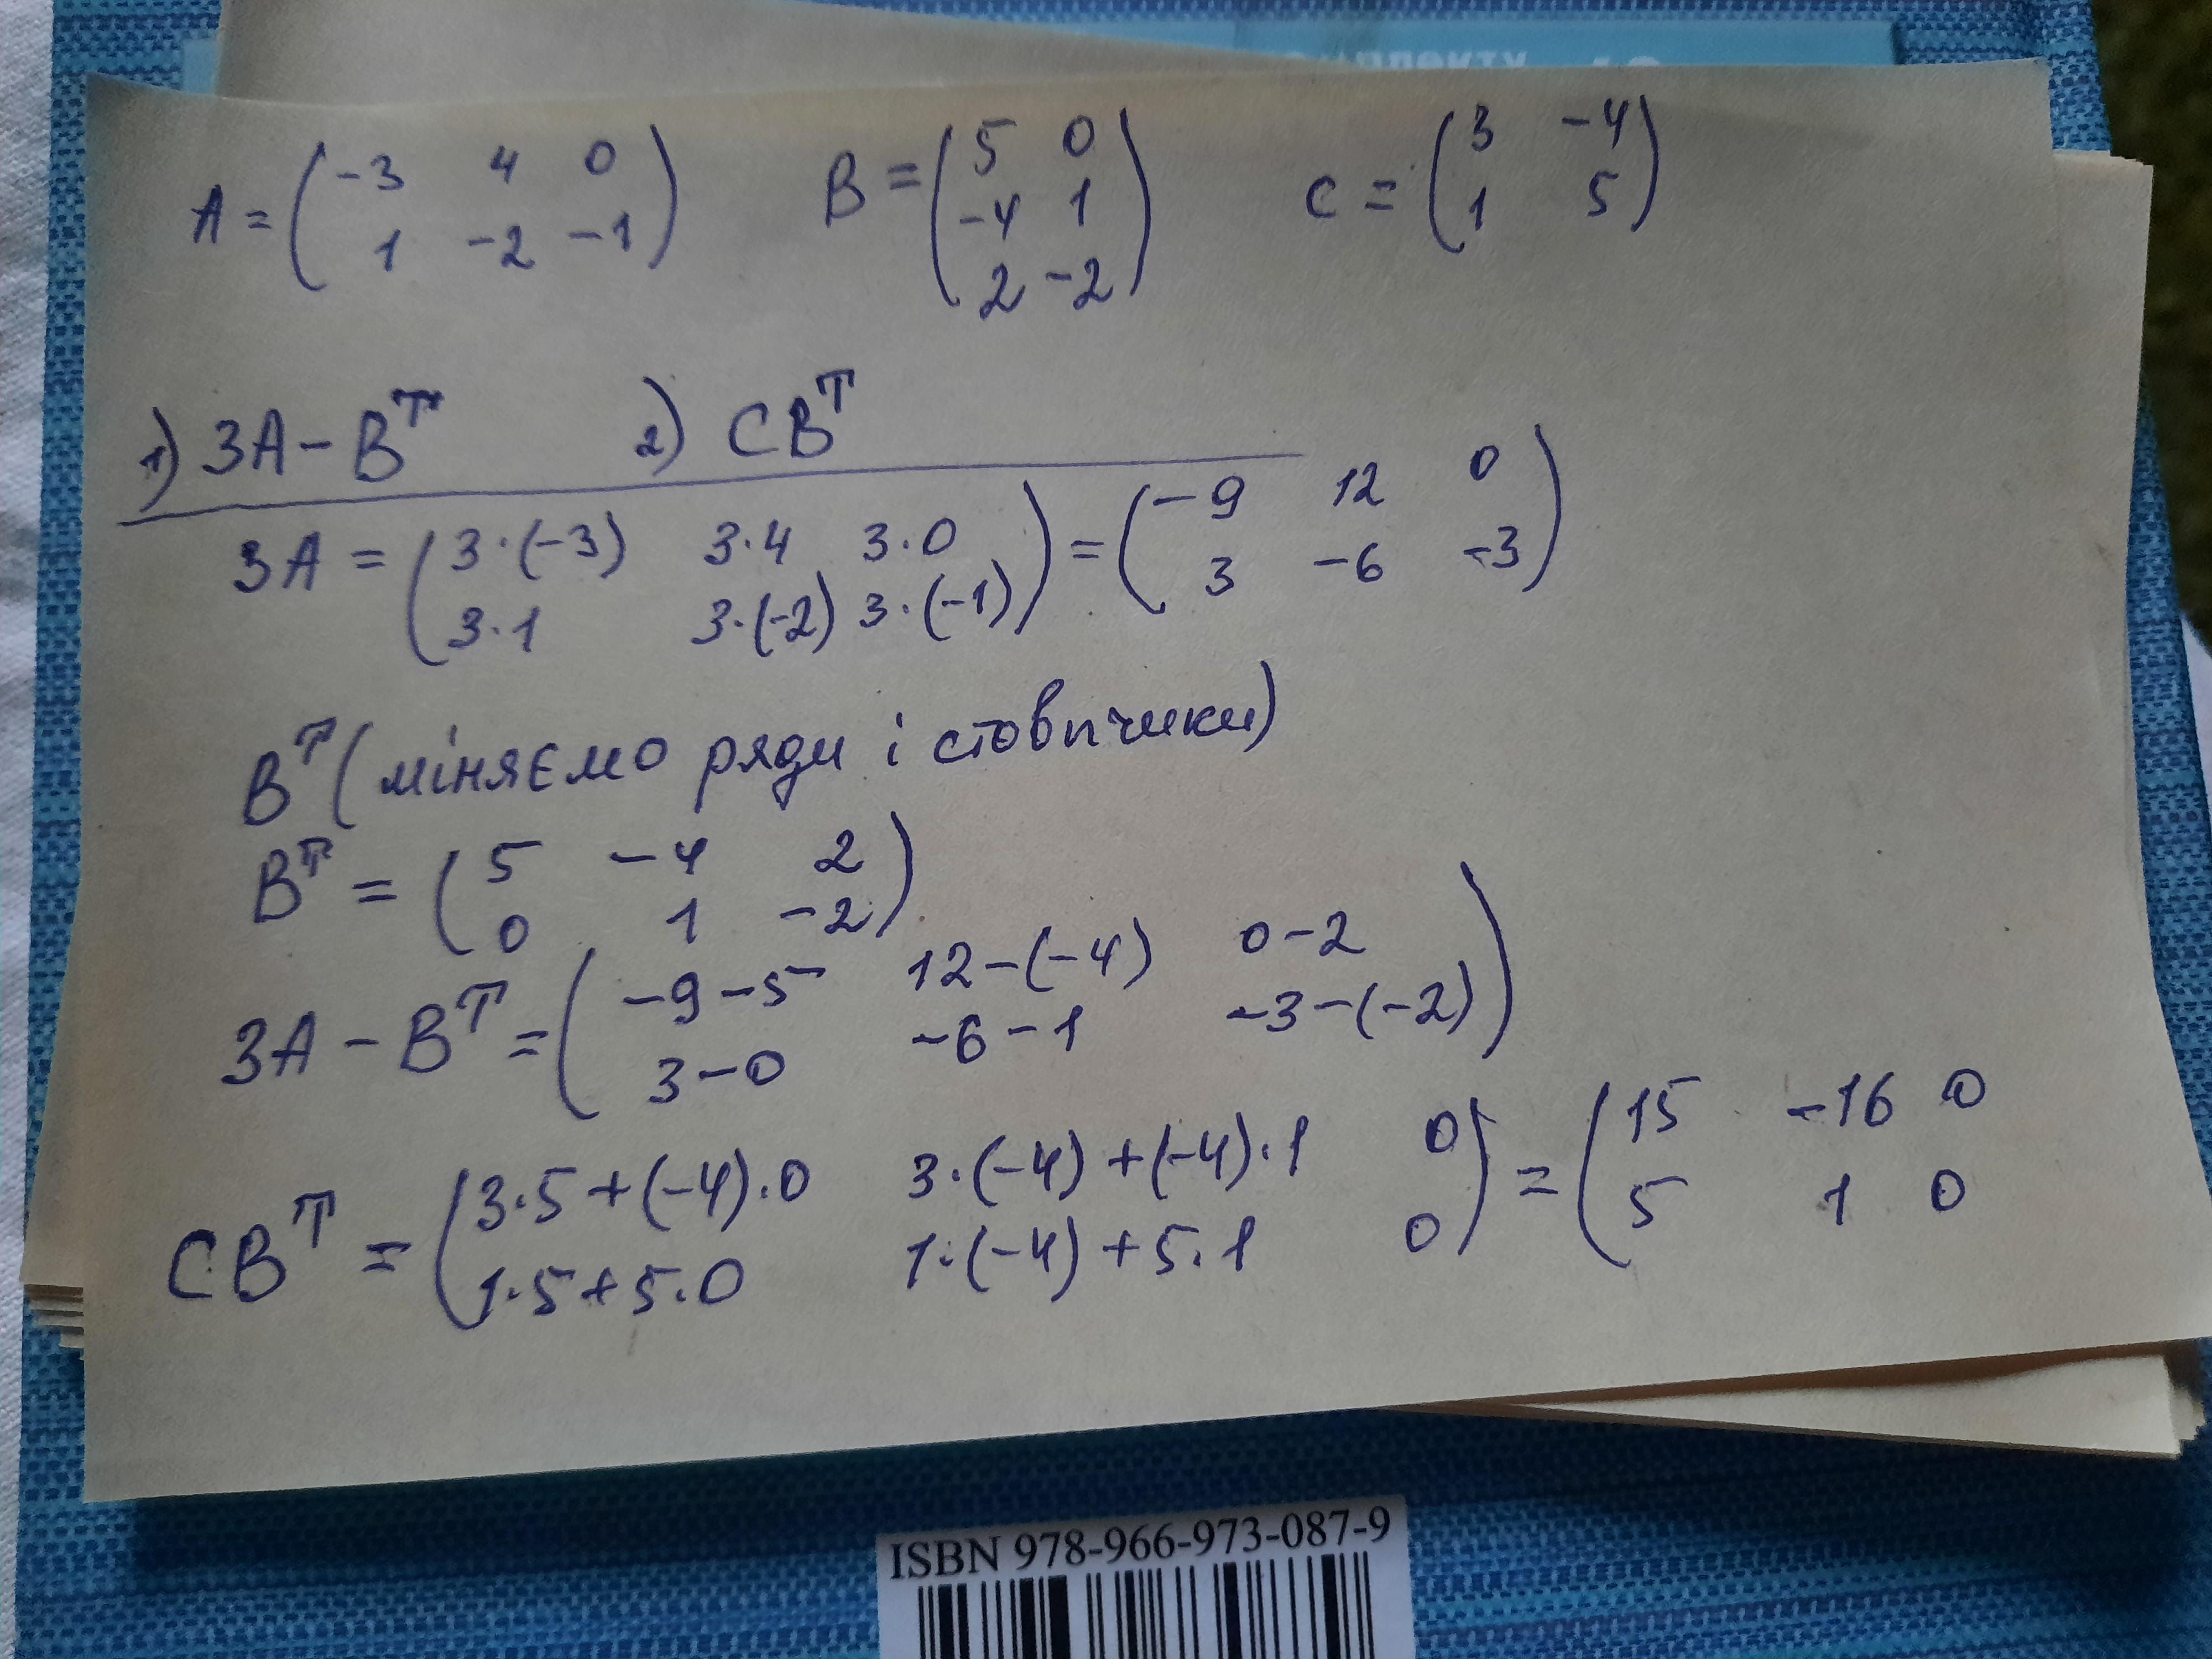 комплекту
A = (-3 4 0
1 -2 -1)
B = (5 0
-4 1
2 -2)
C = (3 -4
1 5)
1) 3A - Bᵀ 2) CBᵀ
3A = (3·(-3) 3·4 3·0
3·1 3·(-2) 3·(-1)) = (-9 12 0
3 -6 -3)
Bᵀ (міняємо ряди і стовпчики)
Bᵀ = (5 -4 2
0 1 -2)
3A - Bᵀ = (-9-5 12-(-4) 0-2
3-0 -6-1 -3-(-2))
CBᵀ = (3·5+(-4)·0 3·(-4)+(-4)·1 0
1·5+5·0 1·(-4)+5·1 0) = (15 -16 0
5 1 0
ISBN 978-966-973-087-9